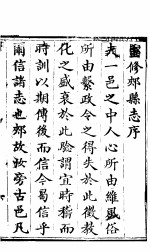 修郟縣志序
夫一邑之中人心所由維風俗
所由繫政令之得失於此徵教
化之盛衰於此驗謂宜時而
時訓以期傳後而信今曷信乎
爾信諸志也郟故汝旁古邑凡